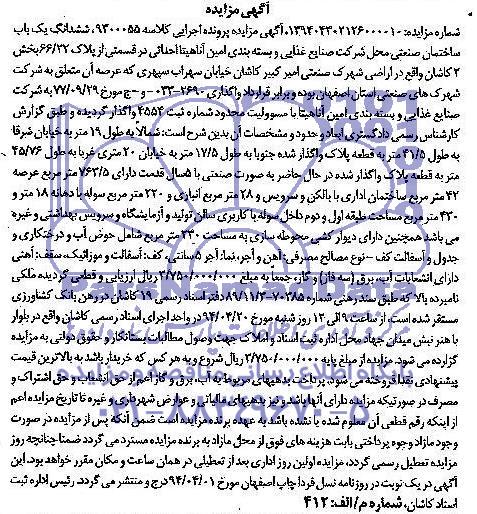 آگهی مزایده
شماره مزایده: ۱۳۹۴۰۴۳۰۲۱۲۶۰۰۰۰۱۰، آگهی مزایده پرونده اجرایی کلاسه ۹۳۰۰۰۵۵، ششدانگ یک باب
ساختمان صنعتی محل شرکت صنایع غذایی و بسته بندی امین آناهیتا احداثی در قسمتی از پلاک ۶۶/۲۲ بخش
۲ کاشان واقع در اراضی شهرک صنعتی امیر کبیر کاشان خیابان سهراب سپهری که عرصه آن متعلق به شرکت
شهرک های صنعتی استان اصفهان بوده و برابر قرارداد واگذاری ۲۶۹۰-۰۳۳-و-ج مورخ ۷۷/۰۹/۲۹ به شرکت
صنایع غذایی و بسته بندی امین آناهیتا با مسوولیت محدود شماره ثبت ۴۵۵۴ واگذار گردیده و طبق گزارش
کارشناس رسمی دادگستری ابعاد و حدود و مشخصات آن بدین شرح است: شمالاً به طول ۱۹ متر به خیابان شرقا
به طول ۴۱/۵ متر به قطعه پلاک واگذار شده جنوبا به طول ۱۷/۵ متر به خیابان ۲۰ متری غربا به طول ۴۵/۷۶
متر به قطعه پلاک واگذار شده در حال حاضر به صورت صنعتی با ۵سال قدمت دارای ۷۶۳/۵ متر مربع عرصه
۴۲ متر مربع ساختمان اداری با بالکن و سرویس و ۲۸ متر مربع انباری و ۲۲۰ متر مربع سوله با دهانه ۱۸ متر و
۴۳۰ متر مربع مساحت طبقه اول و دوم داخل سوله با کاربری سالن تولید و آزمایشگاه و سرویس بهداشتی و غیره
می باشد همچنین دارای دیوار کشی محوطه سازی به مساحت ۲۳۰ متر مربع شامل حوض آب و درختکاری و
جدول و آسفالت کف - نوع مصالح مصرفی: آهن و آجر، نما: آجر ۵ سانتی، کف: آسفالت و موزائیک، سقف: آهنی
دارای انشعابات آب، برق (سه فاز) و گاز، جمعا به مبلغ ۳/۷۵۰/۰۰۰/۰۰۰ ریال ارزیابی و قطعی گردیده ملکی
نامبرده بالا که طبق سند رهنی شماره ۷۰۲۸۵-۸۹/۱۱/۳ دفتر اسناد رسمی ۱۹ کاشان در رهن بانک کشاورزی
مستقر شده است، از ساعت ۹ الی ۱۲ روز شنبه مورخ ۹۴/۰۴/۲۰ در واحد اجرای اسناد رسمی کاشان واقع در بلوار
با هنر نبش میدان جهاد محل اداره ثبت اسناد و املاک جهت وصول مطالبات بستانکار و حقوق دولتی به مزایده
گزارده می شود. مزایده از مبلغ پایه ۳/۷۵۰/۰۰۰/۰۰۰ ریال شروع و به هر کس که خریدار باشد به بالاترین قیمت
پیشنهادی نقدا فروخته می شود، پرداخت بدهیهای مربوط به آب، برق و گاز اعم از حق انشعاب و حق اشتراک و
مصرف در صورتیکه مزایده دارای آنها باشد و نیز بدهیهای مالیاتی و عوارض شهرداری و غیره تا تاریخ مزایده اعم
از اینکه رقم قطعی آن معلوم شده یا نشده باشد به عهده برنده مزایده است ضمن آنکه پس از مزایده در صورت
وجود مازاد وجوه پرداختی بابت هزینه های فوق از محل مازاد به برنده مزایده مسترد می گردد ضمنا چنانچه روز
مزایده تعطیل رسمی گردد، مزایده اولین روز اداری بعد از تعطیلی در همان ساعت و مکان مقرر خواهد بود. این
آگهی در یک نوبت در روزنامه نسل فردا چاپ اصفهان مورخ ۹۴/۰۴/۰۱ درج و منتشر می گردد. رئیس اداره ثبت
اسناد کاشان، شماره م/الف: ۴۱۲
پایگاه اطلاع رسانی مناقصه و مزایده
۰۲۱-۸۸۳۴۹۶۷۰-۵